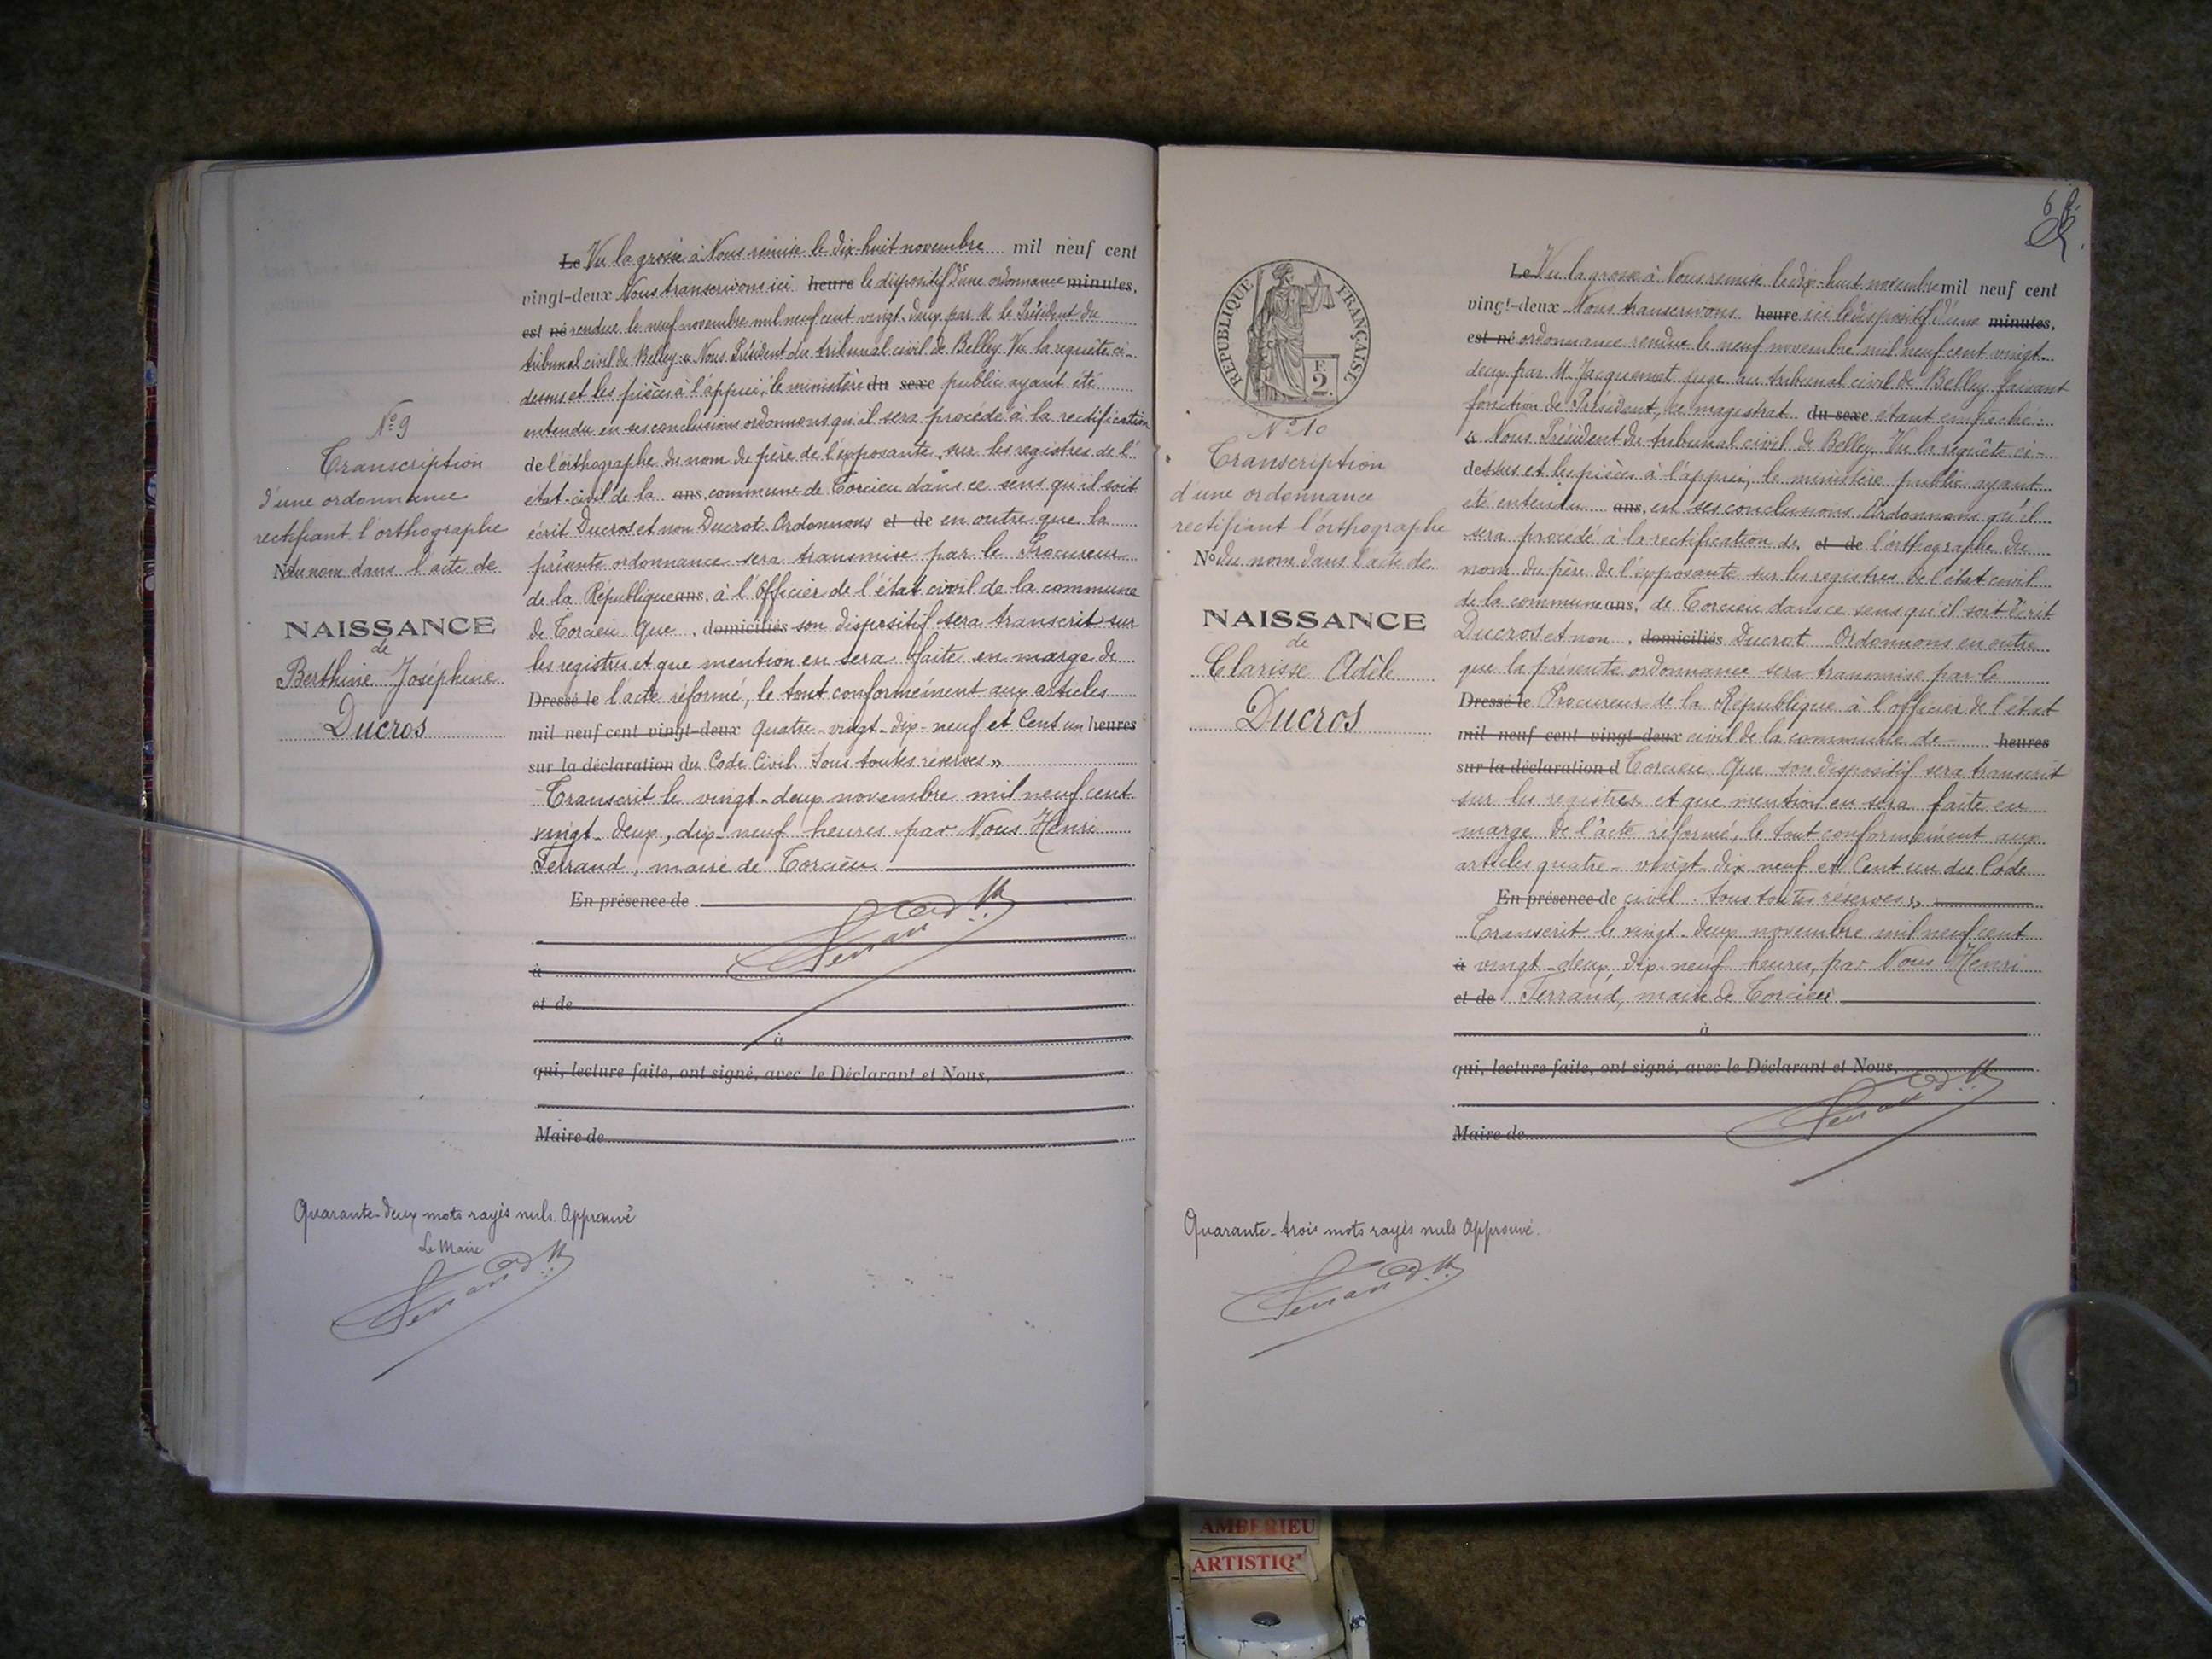 N° 9
Transcription
d'une ordonnance
rectifiant l'orthographe
N° du nom dans l'acte de
NAISSANCE
de
Berthine Joséphine
Ducros
Le Vu la grosse à Nous remise le dix-huit novembre mil neuf cent
vingt-deux Nous transcrivons ici heure le dispositif d'une ordonnance minutes,
est né rendue le neuf novembre mil neuf cent vingt-deux par M. le Président du
tribunal civil de Belley : « Nous Président du tribunal civil de Belley. Vu la requête ci-
dessus et les pièces à l'appui, le ministère du sexe public ayant été
entendu en ses conclusions ordonnons qu'il sera procédé à la rectification
de l'orthographe du nom du père de l'exposante, sur les registres de l'
état-civil de la ans, commune de Torcieu dans ce sens qu'il soit
écrit Ducros et non Ducrot. Ordonnons et de en outre que la
présente ordonnance sera transmise par le Procureur
de la République ans, à l'Officier de l'état civil de la commune
de Torcieu Que , domiciliés son dispositif sera transcrit sur
les registres et que mention en sera faite en marge de
Dressé le l'acte réformé, le tout conformément aux articles
mil neuf cent vingt-deux quatre-vingt-dix-neuf et Cent un heures
sur la déclaration du Code Civil. Sous toutes réserves »
Transcrit le vingt-deux novembre mil neuf cent
vingt-deux, dix-neuf heures par Nous Henri
Ferrand, maire de Torcieu.
En présence de
Ferrand H
à
et de
à
qui, lecture faite, ont signé, avec le Déclarant et Nous,
Maire de
Quarante-deux mots rayés nuls. Approuvé
Le Maire
Ferrand H
RÉPUBLIQUE FRANÇAISE
F.
2.
N° 10
Transcription
d'une ordonnance
rectifiant l'orthographe
N° du nom dans l'acte de
NAISSANCE
de
Clarisse Adèle
Ducros
Le Vu la grosse à Nous remise le dix-huit novembre mil neuf cent
vingt-deux Nous transcrivons heure ici le dispositif d'une minutes,
est né ordonnance rendue le neuf novembre mil neuf cent vingt-
deux par M. Jacquemet juge au tribunal civil de Belley faisant
fonction de Président, ce magistrat du sexe étant empêché :
« Nous Président du tribunal civil de Belley. Vu la requête ci-
dessus et les pièces à l'appui, le ministère public ayant
été entendu ans, en ses conclusions. Ordonnons qu'il
sera procédé à la rectification de, et de l'orthographe du
nom du père de l'exposante sur les registres de l'état civil
de la commune ans, de Torcieu dans ce sens qu'il soit écrit
Ducros et non , domiciliés Ducrot. Ordonnons en outre
que la présente ordonnance sera transmise par le
Dressé le Procureur de la République à l'officier de l'état
mil neuf cent vingt-deux civil de la commune de heures
sur la déclaration d Torcieu Que son dispositif sera transcrit
sur les registres et que mention en sera faite en
marge de l'acte réformé, le tout conformément aux
articles quatre-vingt-dix neuf et Cent un du Code
En présence de civil. Sous toutes réserves »
Transcrit le vingt-deux novembre mil neuf cent
à vingt-deux, dix-neuf heures, par Nous Henri
et de Ferrand, maire de Torcieu
à
qui, lecture faite, ont signé, avec le Déclarant et Nous,
Ferrand H
Maire de
Quarante-trois mots rayés nuls Approuvé.
Ferrand H
AMBERIEU
ARTISTIQ